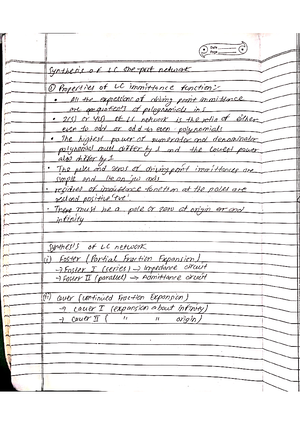 Date
Page
Synthesis of LC one-port network
① Properties of LC immittance function:-
• All the expression of driving point immittance
are quotients of polynomials in s
• Z(s) or Y(s) of LC network is the ratio of either
even to odd or odd to even polynomials
• The highest power of numerator and denominator
polynomial must differ by 1 and the lowest power
also differ by 1
• The poles and zeros of driving point immittances are
simple and lie on jw axis
• residues of immittance function at the poles are
real and positive
• There must be a pole or zero at origin and
infinity
Synthesis of LC network
(i) Foster (Partial Fraction Expansion)
→ Foster I (series) → Impedance circuit
→ Foster II (parallel) → Admittance circuit
(ii) Cauer (continued Fraction Expansion)
→ Cauer I (expansion about infinity)
→ Cauer II ( " " origin)